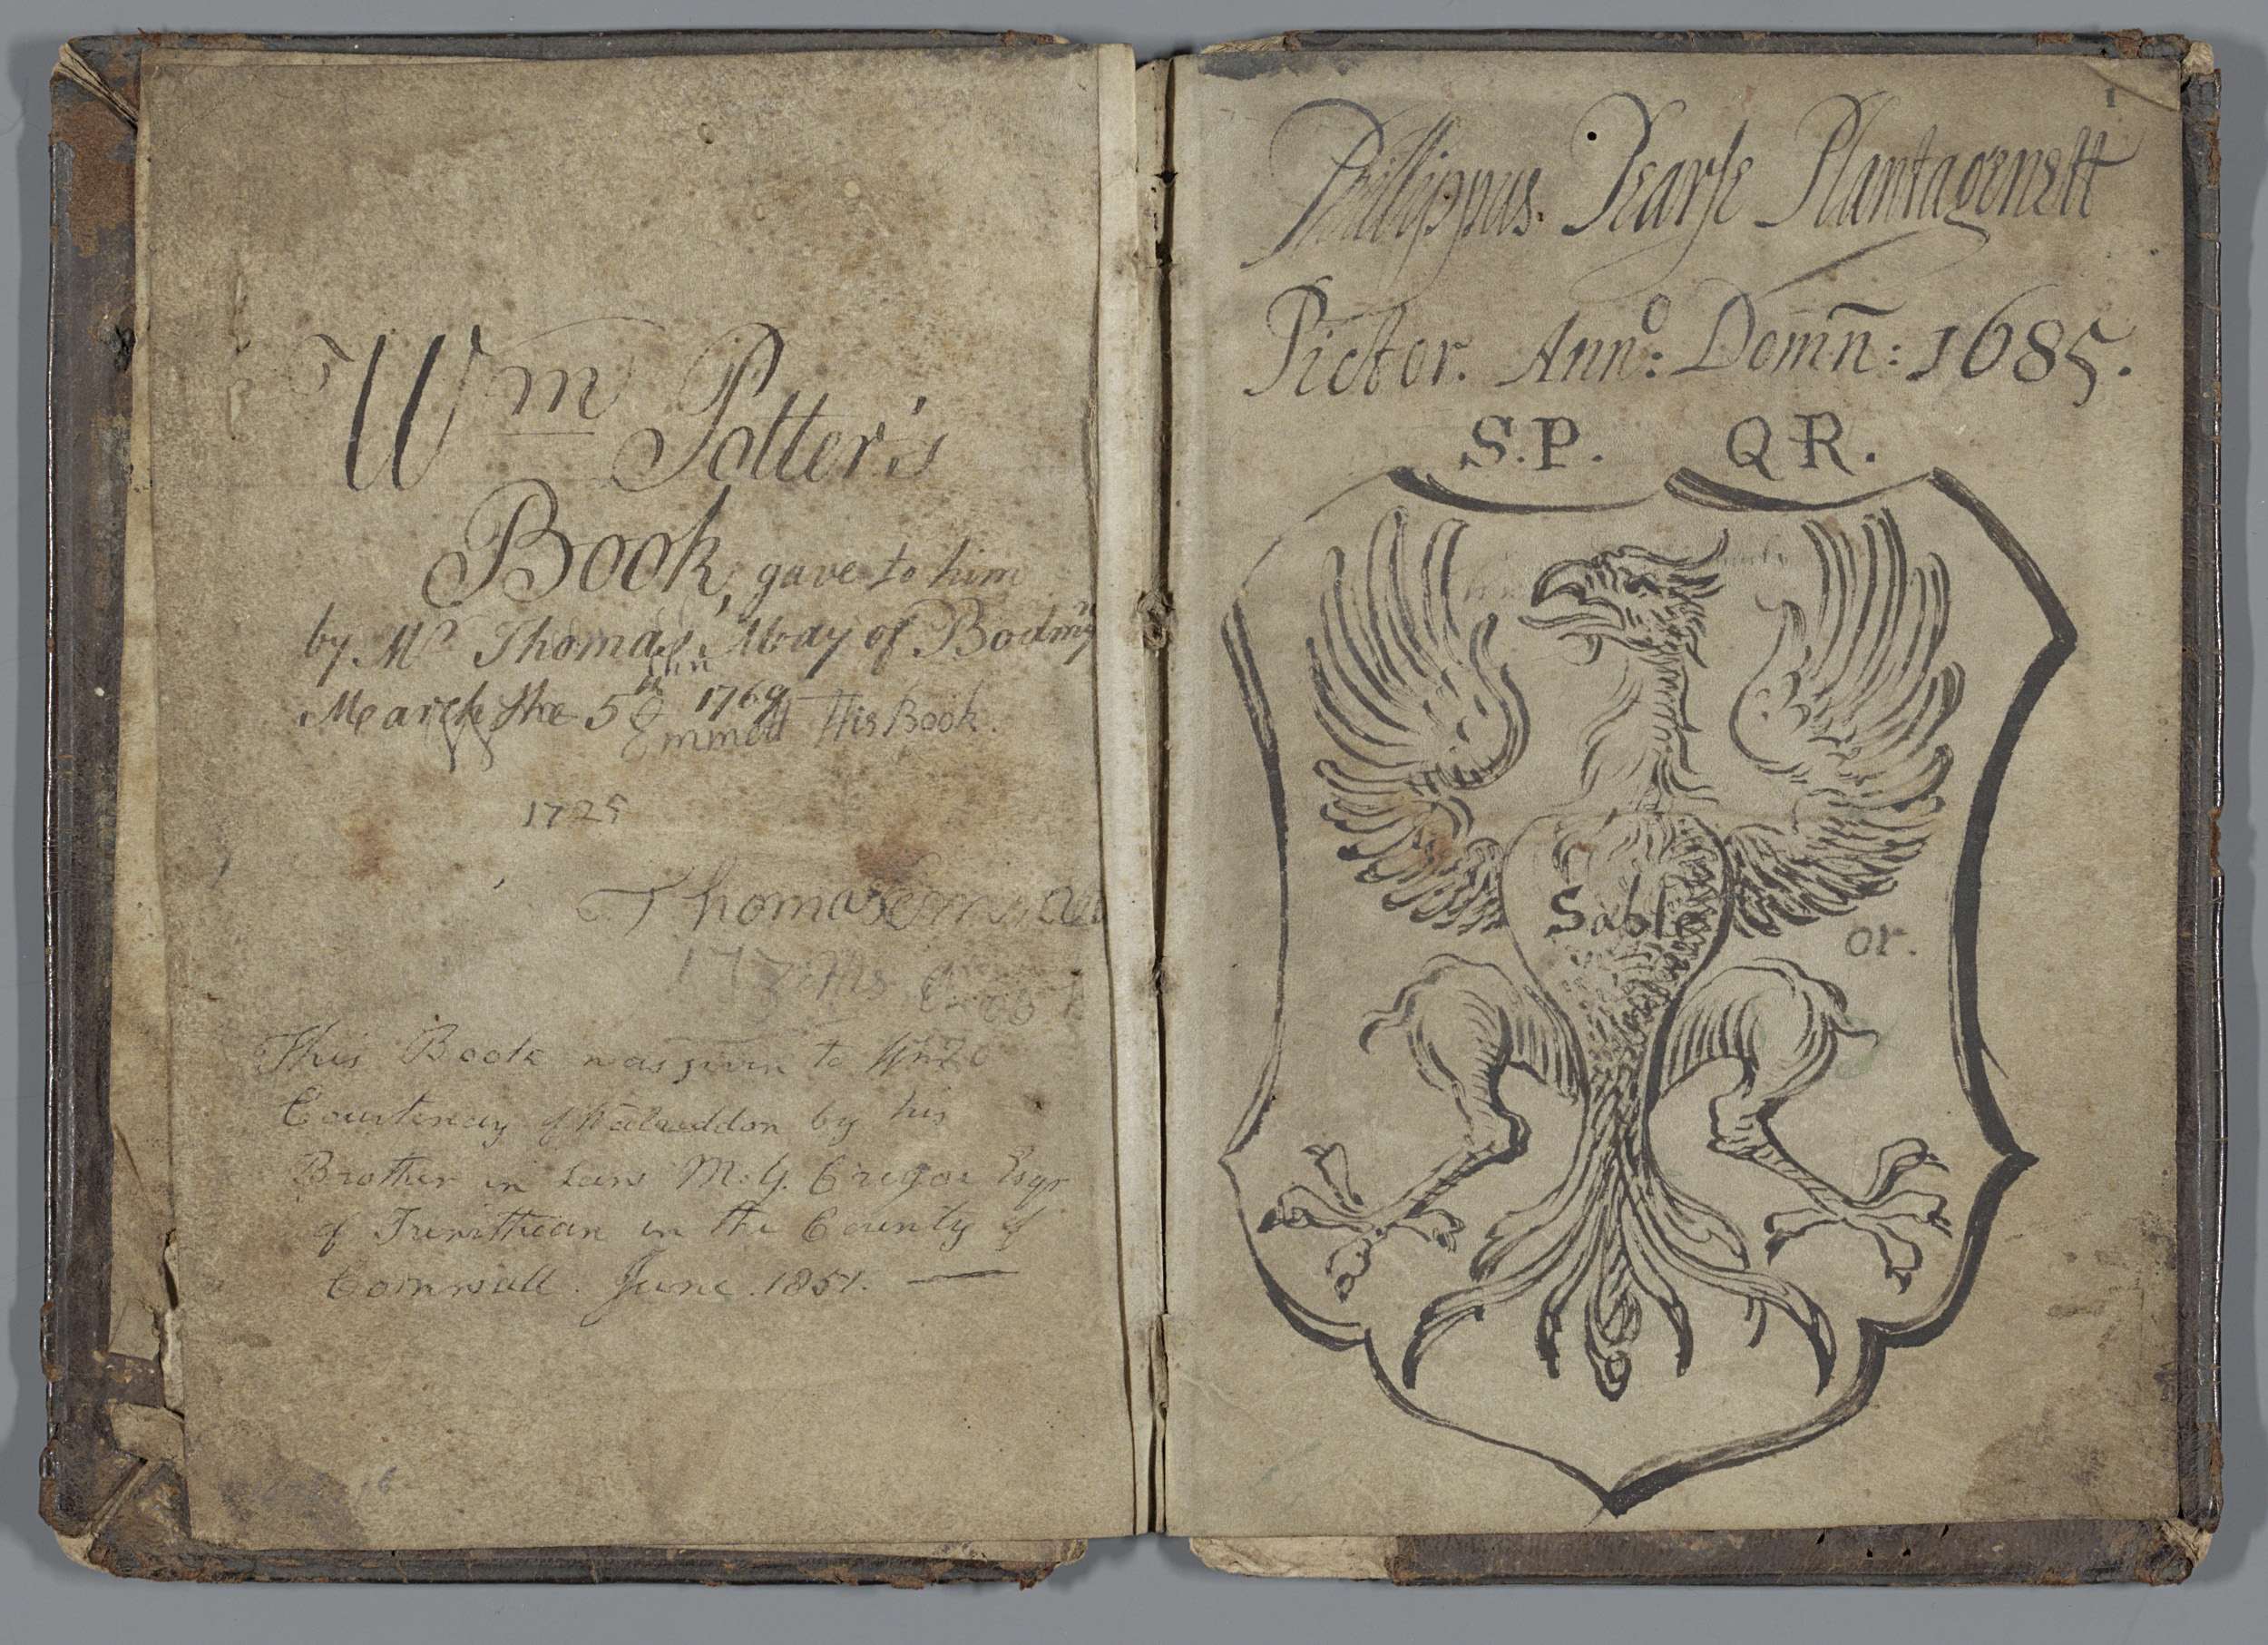 Wm Potter's
Book, gave to him
by Mr Thomas May of Bodmn
March the 5th 1769
Emmett His Book.
1725
Thomas Emmett
his Book
This Book was given to
Courtenay of Walreddon by his
Brother in Law M. G. Cregoe Esqr
of Trewithian in the County of
Cornwall. June 1851.
1
Phillippus. Pearse Plantagenett
Pictor. Anno: Domn: 1685.
S.P. Q R.
Sable
or.